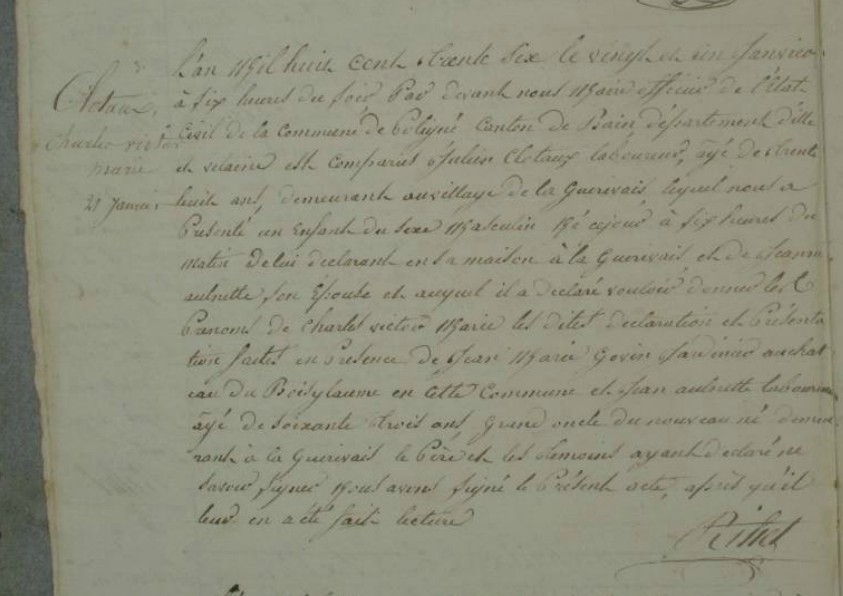 Clotaux
Charles victor
marie
21 Janvier
L'an Mil huit cent trente six le vingt et un Janvier
à six heures du soir Par devant nous Maire officier de l'état
Civil de la Commune de Poligné Canton de Bain département d'ille
et vilaine est Comparus Julien Clotaux laboureur, âgé de trente
huit ans, demeurant au village de la Guerivais lequel nous a
Présenté un Enfant du sexe Masculin Né cejour à six heures du
matin de lui declarant en sa maison à la Guerivais et de Jeanne
aulnette son Epouse et auquel il a declaré vouloir donner les
Prenoms de Charles victor Marie les dites declaration et Présenta
tion faites en Presence de Jean Marie Jardinier au chat
eau du en cette Commune et Jean aulnette laboureur
âgé de soixante trois ans grand oncle du nouveau né demeu
rant à la Guerivais le Père et les temoins ayant declaré ne
savoir signer Nous avons signé le Présent acte, après qu'il
leur en a été fait lecture